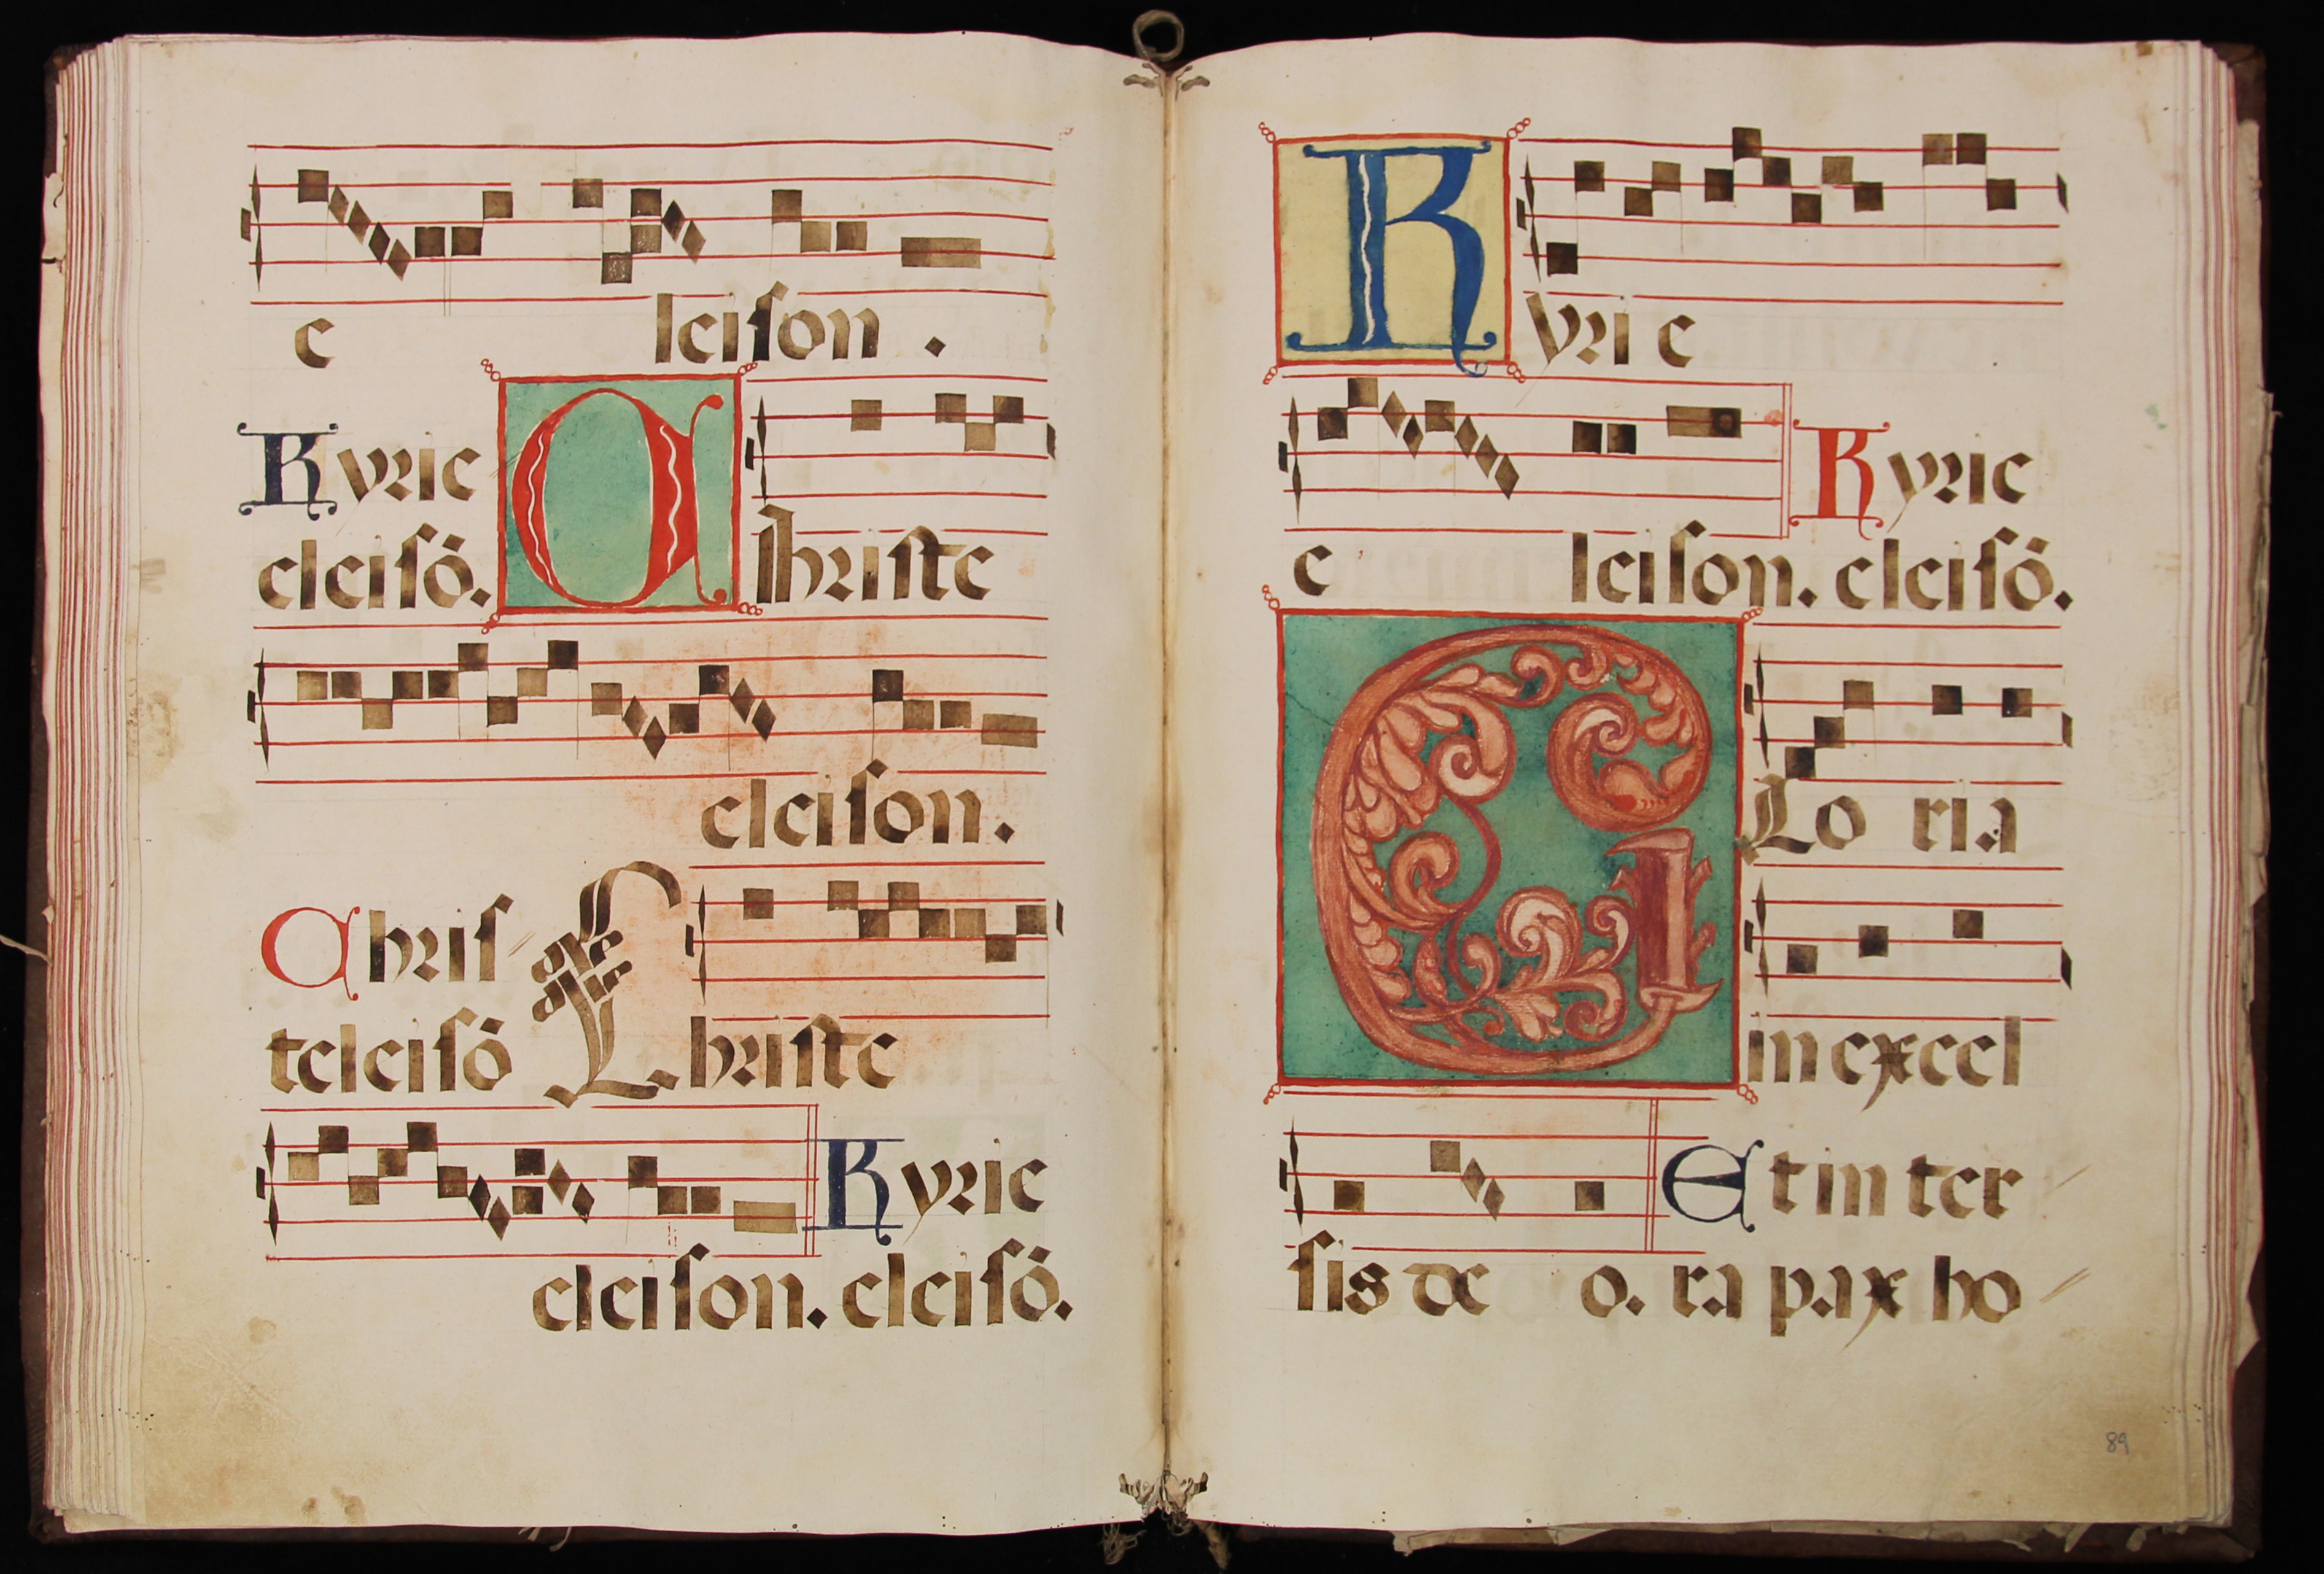 e leison.
Kyrie
eleisō. Christe
eleison.
Chris
teleisō Christe
Kyrie
eleison. eleisō.
Kyrie
Kyrie
e leison. eleisō.
Glo ria
in excel
Et in ter
sis de o. ra pax ho
89